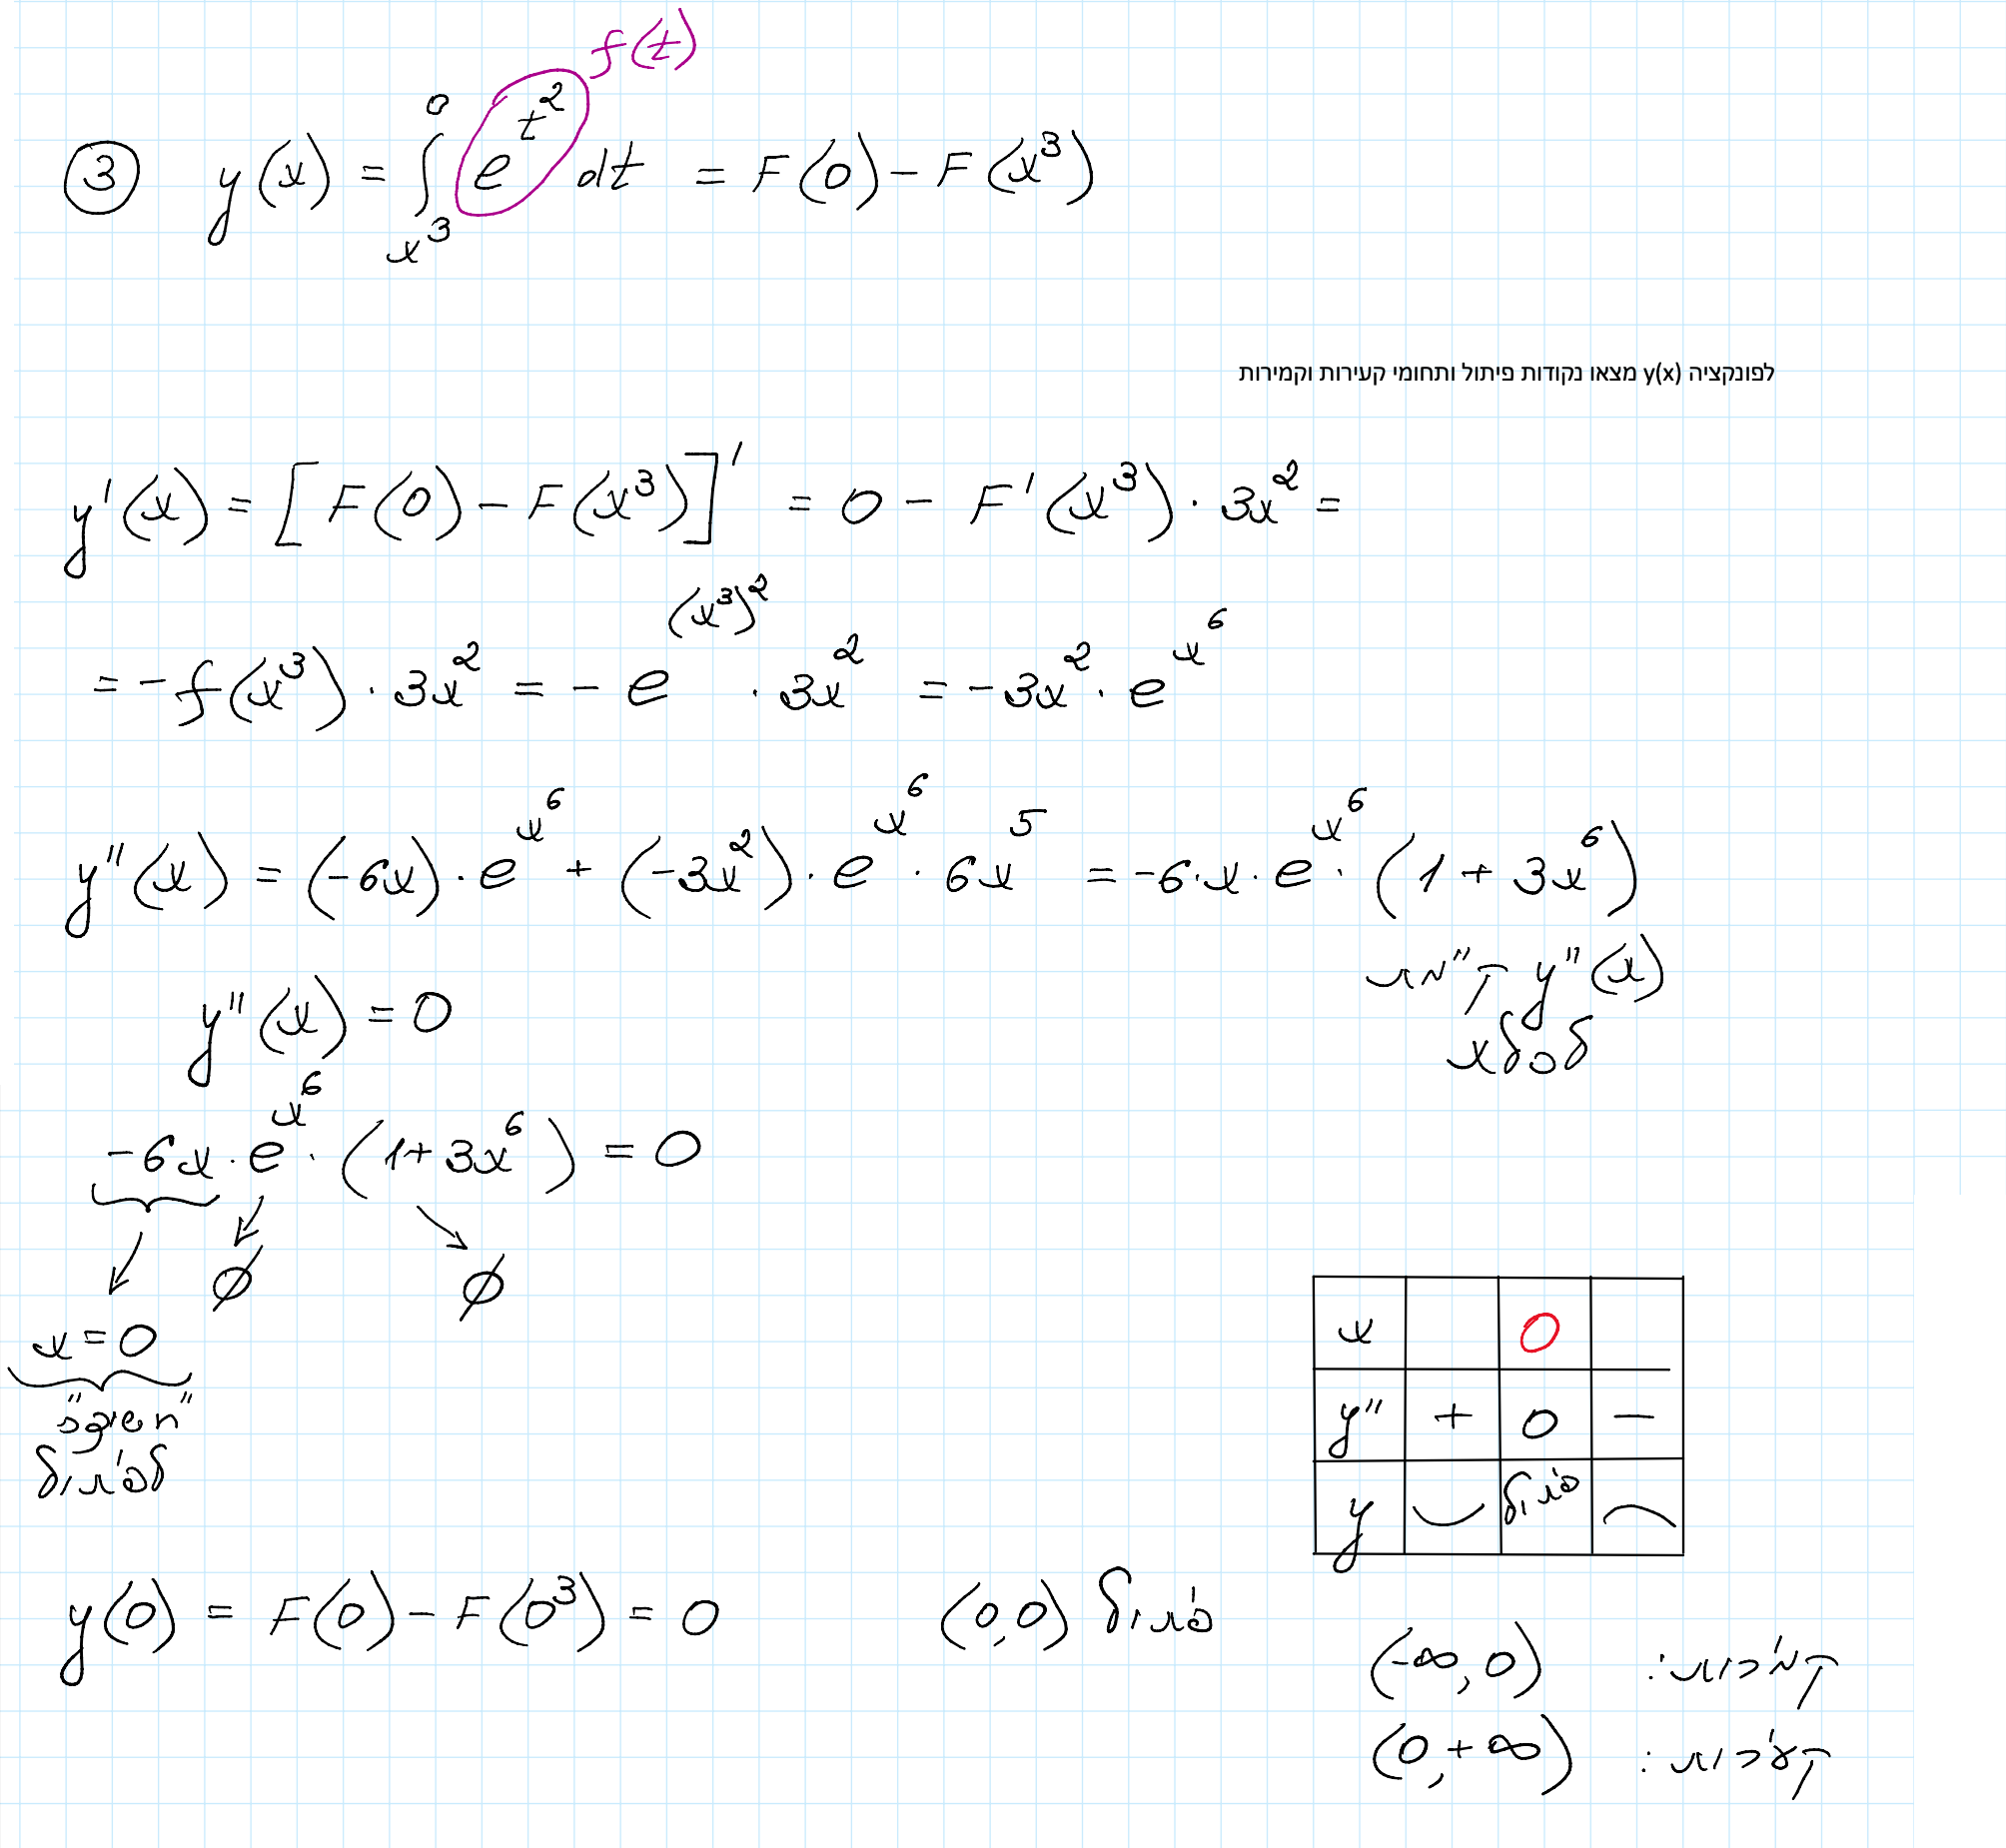 f(t)
③ y(x) = ∫_{x^3}^{0} e^{t^2} dt = F(0) - F(x^3)
לפונקציה y(x) מצאו נקודות פיתול ותחומי קעירות וקמירות
y'(x) = [F(0) - F(x^3)]' = 0 - F'(x^3) · 3x^2 =
= - f(x^3) · 3x^2 = - e^{(x^3)^2} · 3x^2 = -3x^2 · e^{x^6}
y''(x) = (-6x) · e^{x^6} + (-3x^2) · e^{x^6} · 6x^5 = -6·x·e^{x^6} · (1 + 3x^6)
y''(x) קיימת
לכל x
y''(x) = 0
-6x · e^{x^6} · (1+3x^6) = 0
∅ ∅
x = 0
"חשודה"
לפיתול
x 0
y'' + 0 −
y ⌣ פיתול ⌢
y(0) = F(0) - F(0^3) = 0
פיתול (0,0)
קמירות: (-∞, 0)
קעירות: (0, +∞)